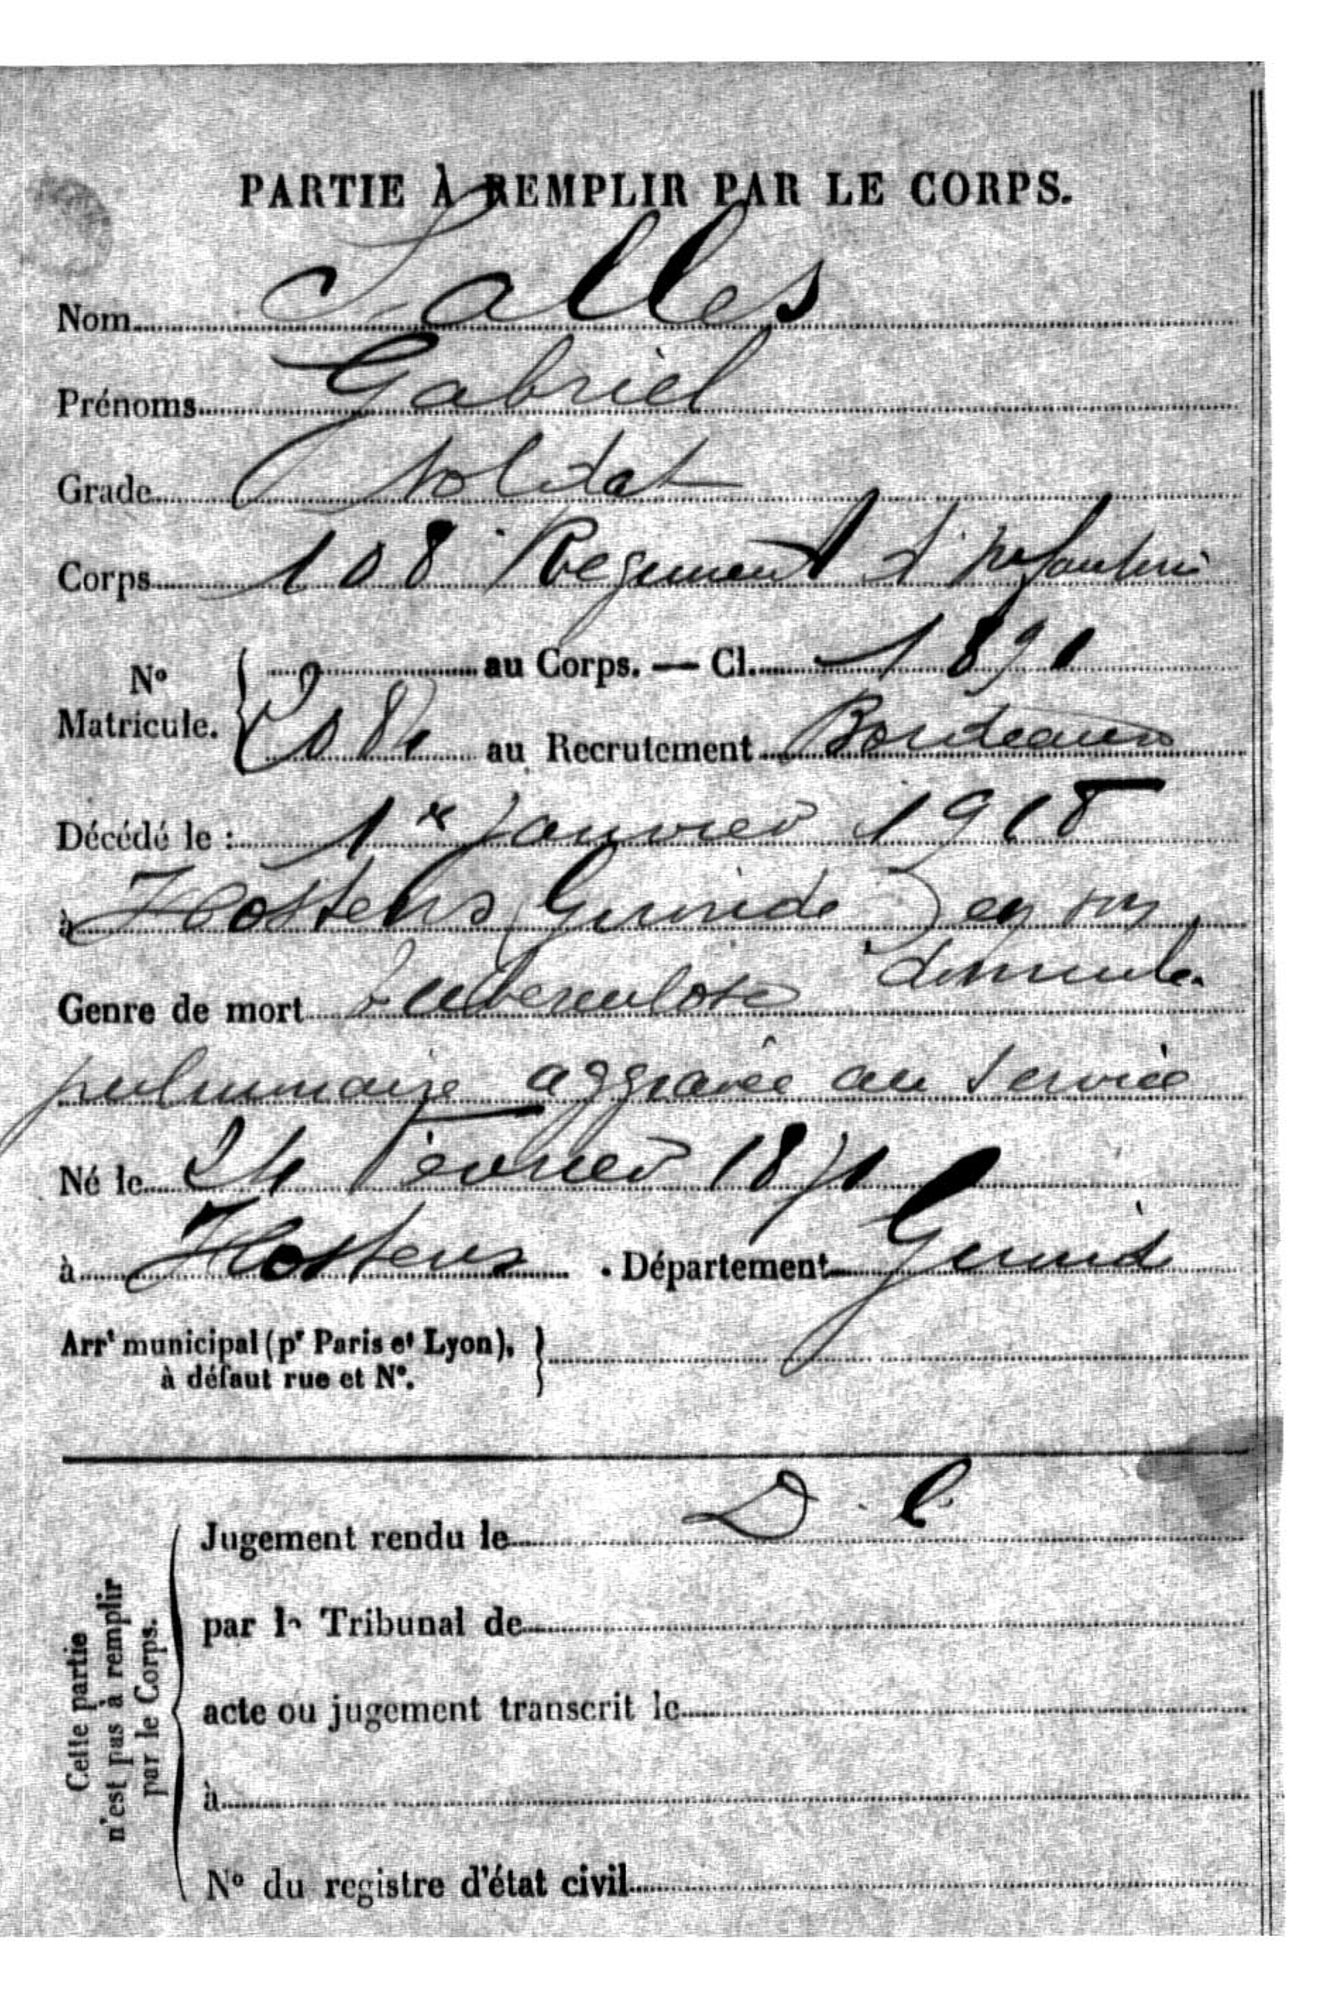 PARTIE À REMPLIR PAR LE CORPS.
Nom Salles
Prénoms Gabriel
Grade soldat
Corps 108 Régiment d'infanterie
N° Matricule. au Corps. — Cl. 1891
au Recrutement Bordeaux
Décédé le : 1er janvier 1918
à Hostens (Gironde) en son
domicile
Genre de mort tuberculose
pulmonaire aggravée au service
Né le 24 février 1871
à Hostens . Département Gironde
Arrt municipal (pr Paris et Lyon),
à défaut rue et N°.
D. C.
Jugement rendu le
par le Tribunal de
acte ou jugement transcrit le
à
N° du registre d'état civil
Cette partie
n'est pas à remplir
par le Corps.